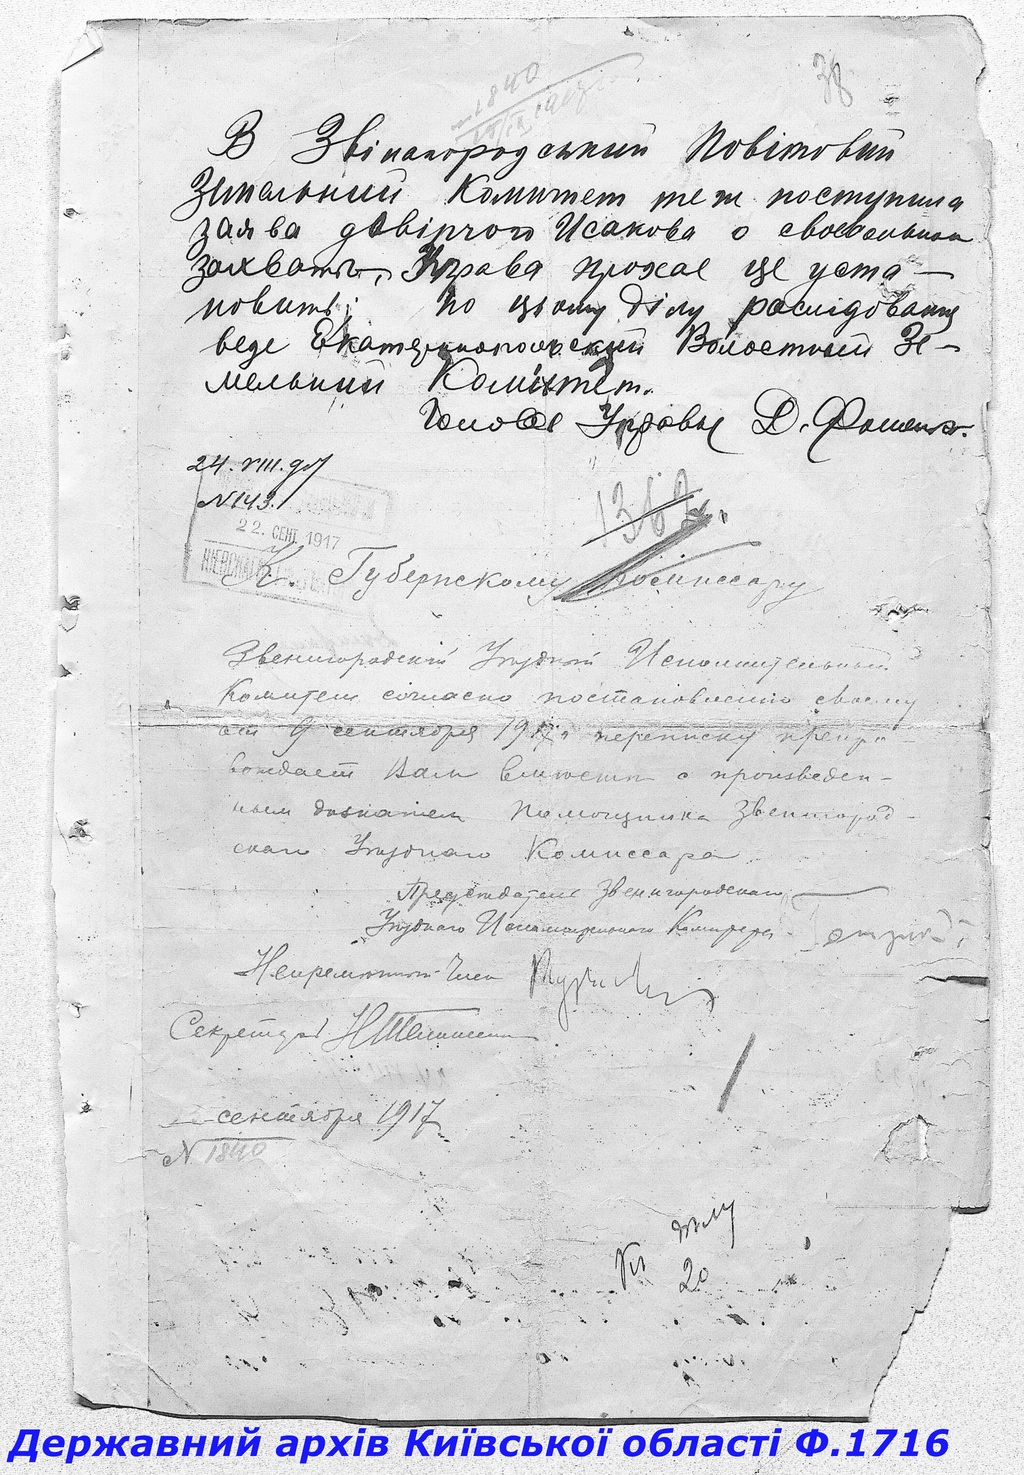 38
№ 1840
В Звінагородський Повітовий
Земельний Комитет теж поступила
заява довірчого Исакова о своевольном
захвати, Управа прохае це уста-
новить; по цьому ділу расмідования
веде Екатеринопольский Волостний Зе-
мельний Комітет.
Голова Управы Д. Фоменко.
24. VIII. 917
N 143.
22. СЕНТ. 1917
1362
Г. Губернскому Комиссару
Звенигородский Уездный Исполнительный
Комитет согласно постановлению своему
от 9 сентября 1917 г. переписку препро-
вождает Вам вместе с произведен-
ным дознанием Помощника Звенигород-
скаго Уезднаго Комиссара
Председатель Звенигородскаго
Уезднаго Исполнительнаго Комитета
Непременный Член
Секретарь
сентября 1917
N 1840
К делу
20
Державний архів Київської області Ф.1716